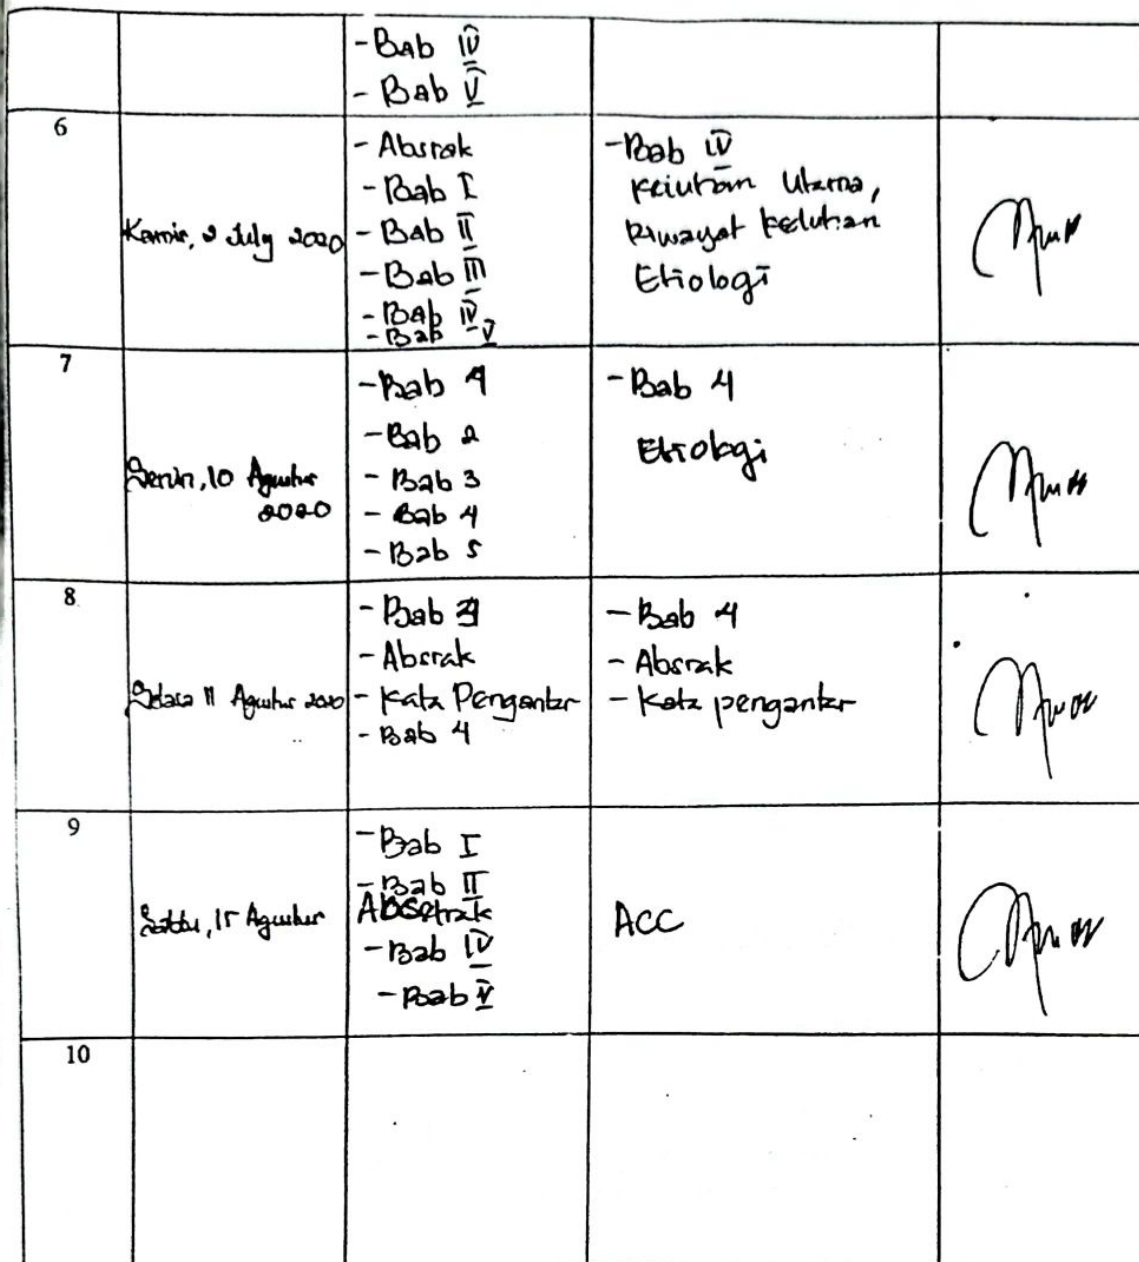 - Bab IV
- Bab V
6
Kamis, 2 July 2020
- Absrak
- Bab I
- Bab II
- Bab III
- Bab IV
- Bab V
- Bab IV
Keluhan Utama,
Riwayat Keluhan
Etiologi
7
Senin, 10 Agustus
2020
- Bab 1
- Bab 2
- Bab 3
- Bab 4
- Bab 5
- Bab 4
Etiologi
8
Selasa 11 Agustus 2020
- Bab
- Absrak
- Kata Pengantar
- Bab 4
- Bab 4
- Absrak
- Kata pengantar
9
Sabtu, 15 Agustus
- Bab I
- Bab II
Absetrak
- Bab IV
- Bab V
ACC
10